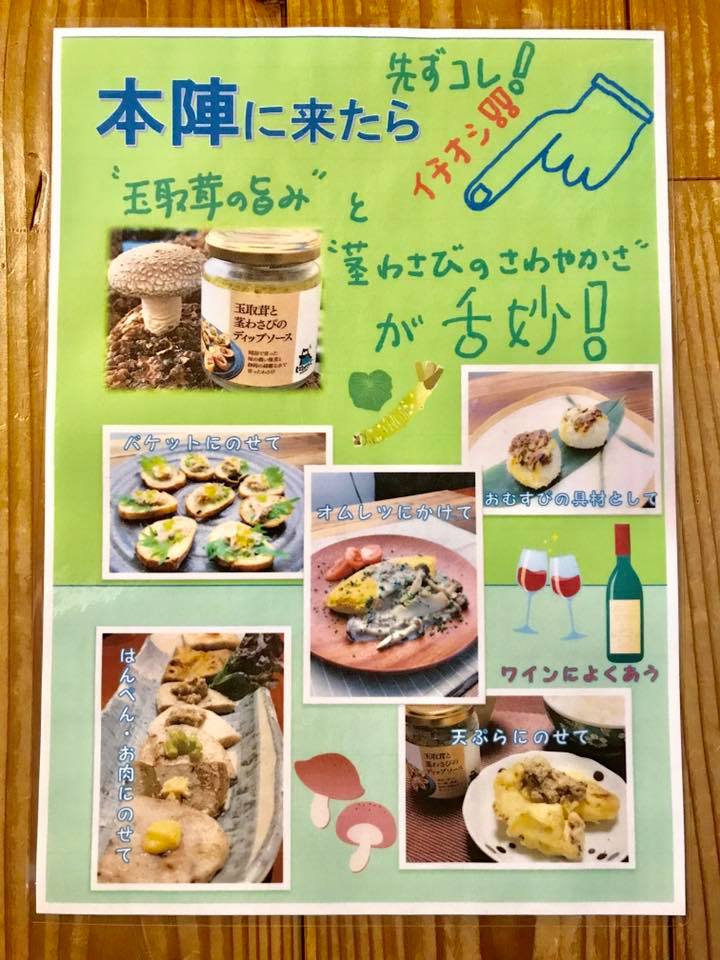 本陣に来たら
先ずコレ!
イチオシ!!
"玉取茸の旨み"と
"茎わさびのさわやかさ"
が舌妙!
玉取茸と
茎わさびの
ディップソース
バケットにのせて
おむすびの具材として
オムレツにかけて
ワインによくあう
はんぺん・お肉にのせて
天ぷらにのせて
玉取茸と
茎わさびの
ディップソース